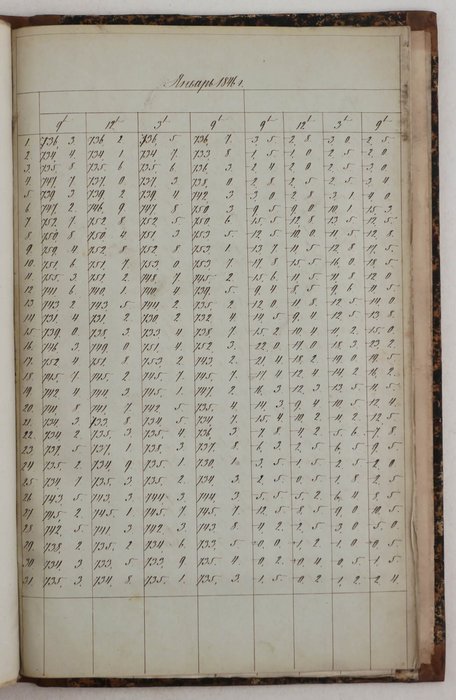 Январь 1846 г.
9 12 3 9 9 12 3 9
1. 736, 3 736 2 736, 5 736, 7. 3, 5 2, 8 3, 0 2, 5
2. 734, 4 734, 1 734, 7. 733, 8 1, 5 1, 0 2, 5 2, 0
3. 735, 8 735, 6 735, 6 736, 3 2, 4 2, 0 2, 5 3, 0
4. 737, 0 737, 3 738, 0 2, 8 2, 5 2, 5 3, 4
5. 739, 3 739, 2 739, 4 742, 3 3, 0 2, 8 3, 1 4, 0
6. 747, 2. 746, 9. 747, 8 750, 3 9, 5 9, 0 10, 7 15, 3
7. 752, 7. 752, 8 752, 5 750, 6 15, 5 12, 8 13, 5 12, 5
8. 750, 8 750, 4 751, 3 753, 5 12, 5 10, 0 11, 5 12, 8
9. 759, 4 752, 8 752, 8 753, 1 13, 7 11, 5 12, 8 17, 5
10. 751, 6 751, 7. 753, 0 753, 7 17, 8 15, 5 16, 0 18, 5
11. 755, 3. 751, 2 748, 7. 745, 2 15, 6 11, 5 11, 8 12, 0
12. 741, 6 740, 1 740, 4 739, 5 9, 4 8, 5 9, 6 11, 5
13. 743, 2 743, 5 744, 2 735, 2 12, 0 11, 8 12, 5 14, 0
14. 731, 4 731, 2 730, 2 732, 4 14, 5 9, 4 12, 5 13, 8
15. 739, 0 738, 3 733, 4 738, 7. 15, 2 10, 4 11, 2 15, 0
16. 746, 3 749, 0 751, 4 752, 3 22, 0 17, 0 18, 3 23, 2
17. 752, 4 751, 8 753, 2 743, 2 21, 4 18, 2 19, 0 19, 5
18. 745, 7 745, 2 745, 7. 745, 7. 17, 4 12, 4 14, 2 16, 2
19. 742, 4 744, 3 745, 1 747, 2 16, 3 12, 3 13, 5
20. 741, 8 741, 7 742, 5 735, 4 14, 3 9, 4 10, 5 12, 4
21. 734, 3 733, 8 734, 5 734, 7. 15, 4 10, 2 11, 2 12, 5
22. 734, 2 735, 3. 735, 4 736, 3 7, 8 4, 2 5, 6 7, 8
23. 737, 5 737, 1 738, 3 737, 8 6, 3 2, 5 6, 5 9, 5
24. 735, 2 734, 9 735, 1 730, 1 3, 5 1, 5 2, 5 2, 0
25. 734, 7 735, 5 735, 2 734, 3 2, 5 0, 5 1, 8 2, 5
26. 743, 5 743, 3 744, 3 744, 3 5, 5 5, 2 6, 4 8, 5
27. 745, 2. 745, 1 745, 7. 745, 7. 12, 5 8, 5 9, 0 10, 5
28. 742, 5 741, 3 742, 3 743, 8 4, 2 2, 5 3, 0 5, 0
29. 738, 2 735, 2 734, 6. 733, 5 0, 0 1, 2 1, 0 0, 5
30. 734, 3 733, 5 733, 9 735, 4 0, 2 0, 4 0, 5 1, 5
31. 735, 3. 734, 8 735, 1. 735, 3. 1, 5 0, 2 1, 2 2, 4